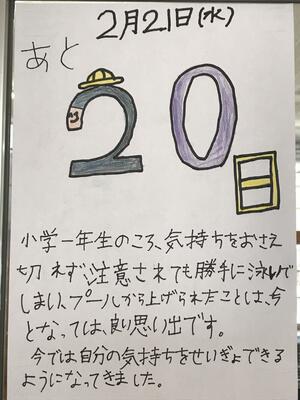 2月21日(水)
あと
20日
小学一年生のころ、気持ちをおさえ
切れず注意されても勝手に泳いで
しまい、プールから上げられたことは、今
となっては、良い思い出です。
今では自分の気持ちをせいぎょできる
ようになってきました。